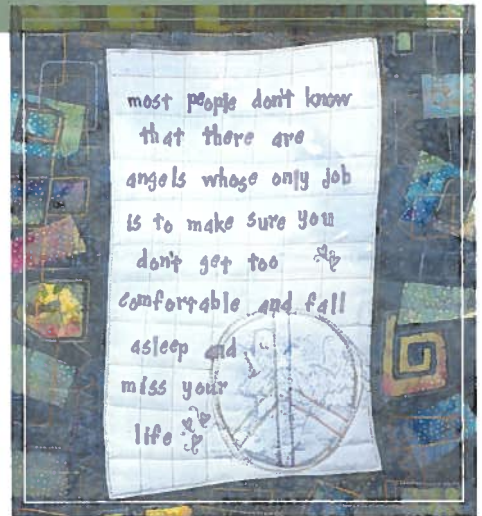 most people don't know
that there are
angels whose only job
is to make sure you
don't get too
comfortable and fall
asleep and
miss your
life